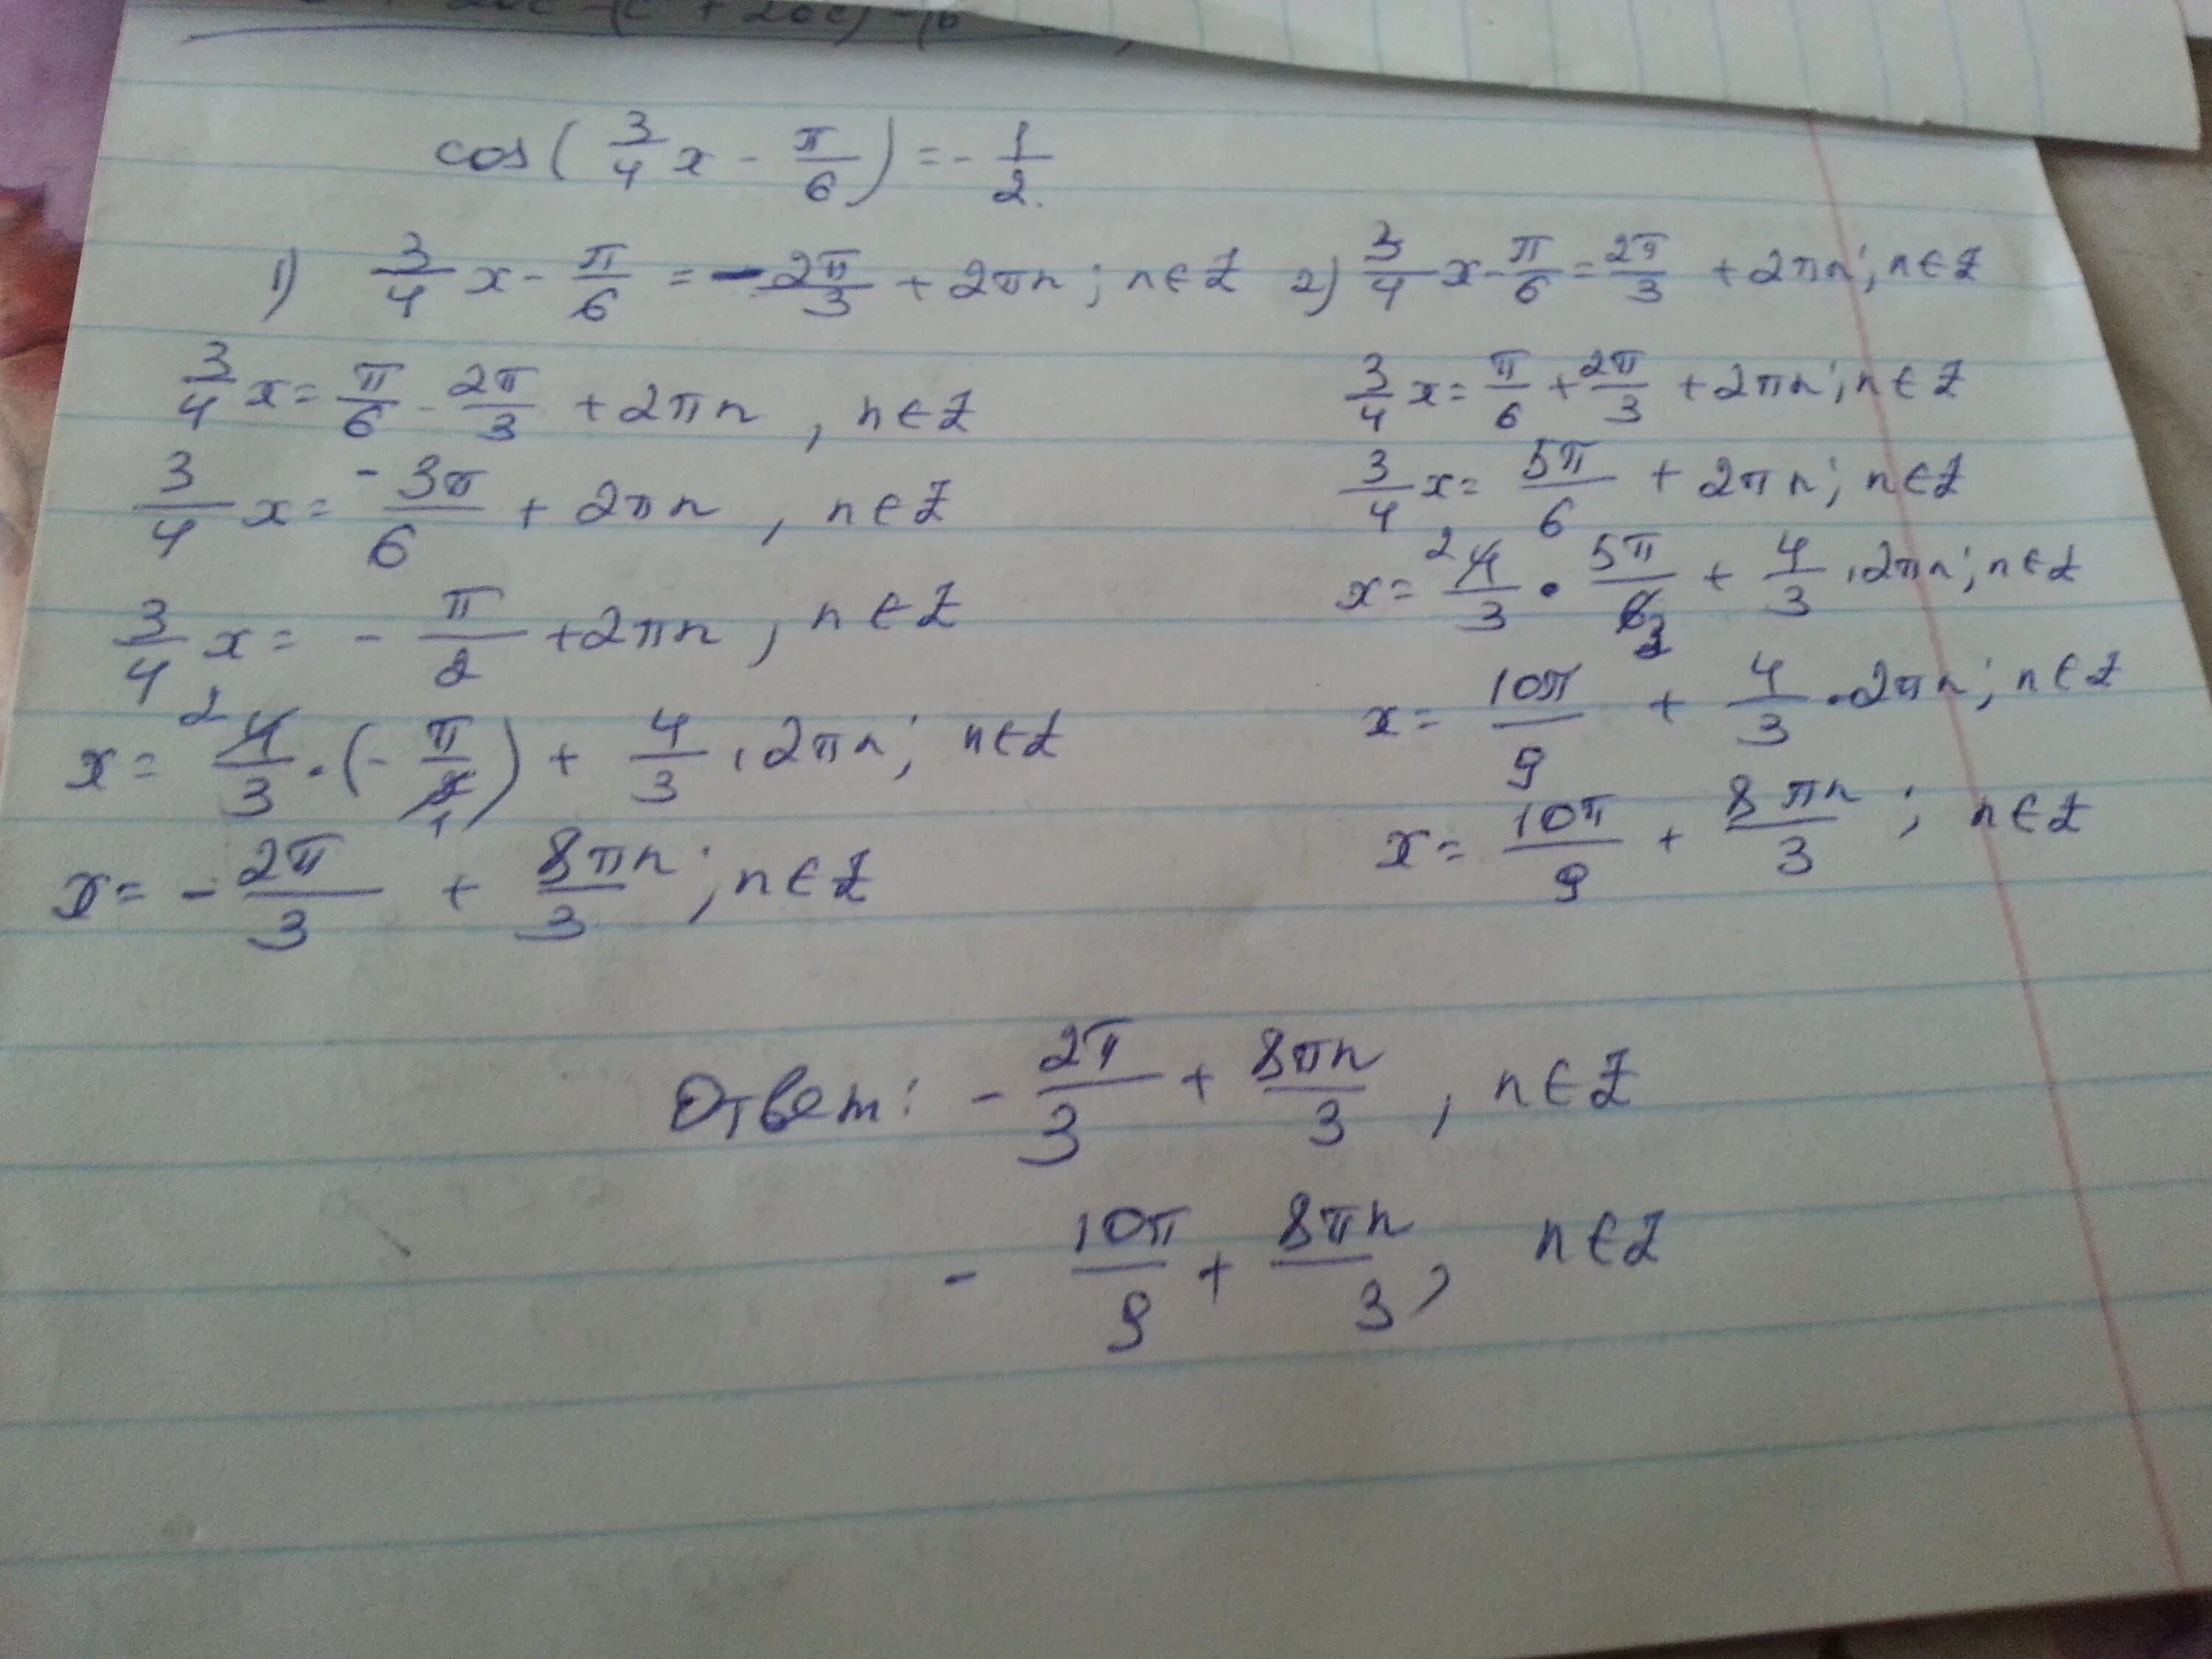 cos(3/4 x - π/6) = - 1/2.
1) 3/4 x - π/6 = - 2π/3 + 2πn; n∈Z
3/4 x = π/6 - 2π/3 + 2πn, n∈Z
3/4 x = -3π/6 + 2πn, n∈Z
3/4 x = - π/2 + 2πn, n∈Z
x = 2 4/3 · (- π/2 1) + 4/3 · 2πn; n∈Z
x = - 2π/3 + 8πn/3; n∈Z
2) 3/4 x - π/6 = 2π/3 + 2πn; n∈Z
3/4 x = π/6 + 2π/3 + 2πn; n∈Z
3/4 x = 5π/6 + 2πn; n∈Z
x = 2 4/3 · 5π/6 3 + 4/3 · 2πn; n∈Z
x = 10π/9 + 4/3 · 2πn; n∈Z
x = 10π/9 + 8πn/3; n∈Z
Ответ: - 2π/3 + 8πn/3, n∈Z
- 10π/9 + 8πn/3, n∈Z